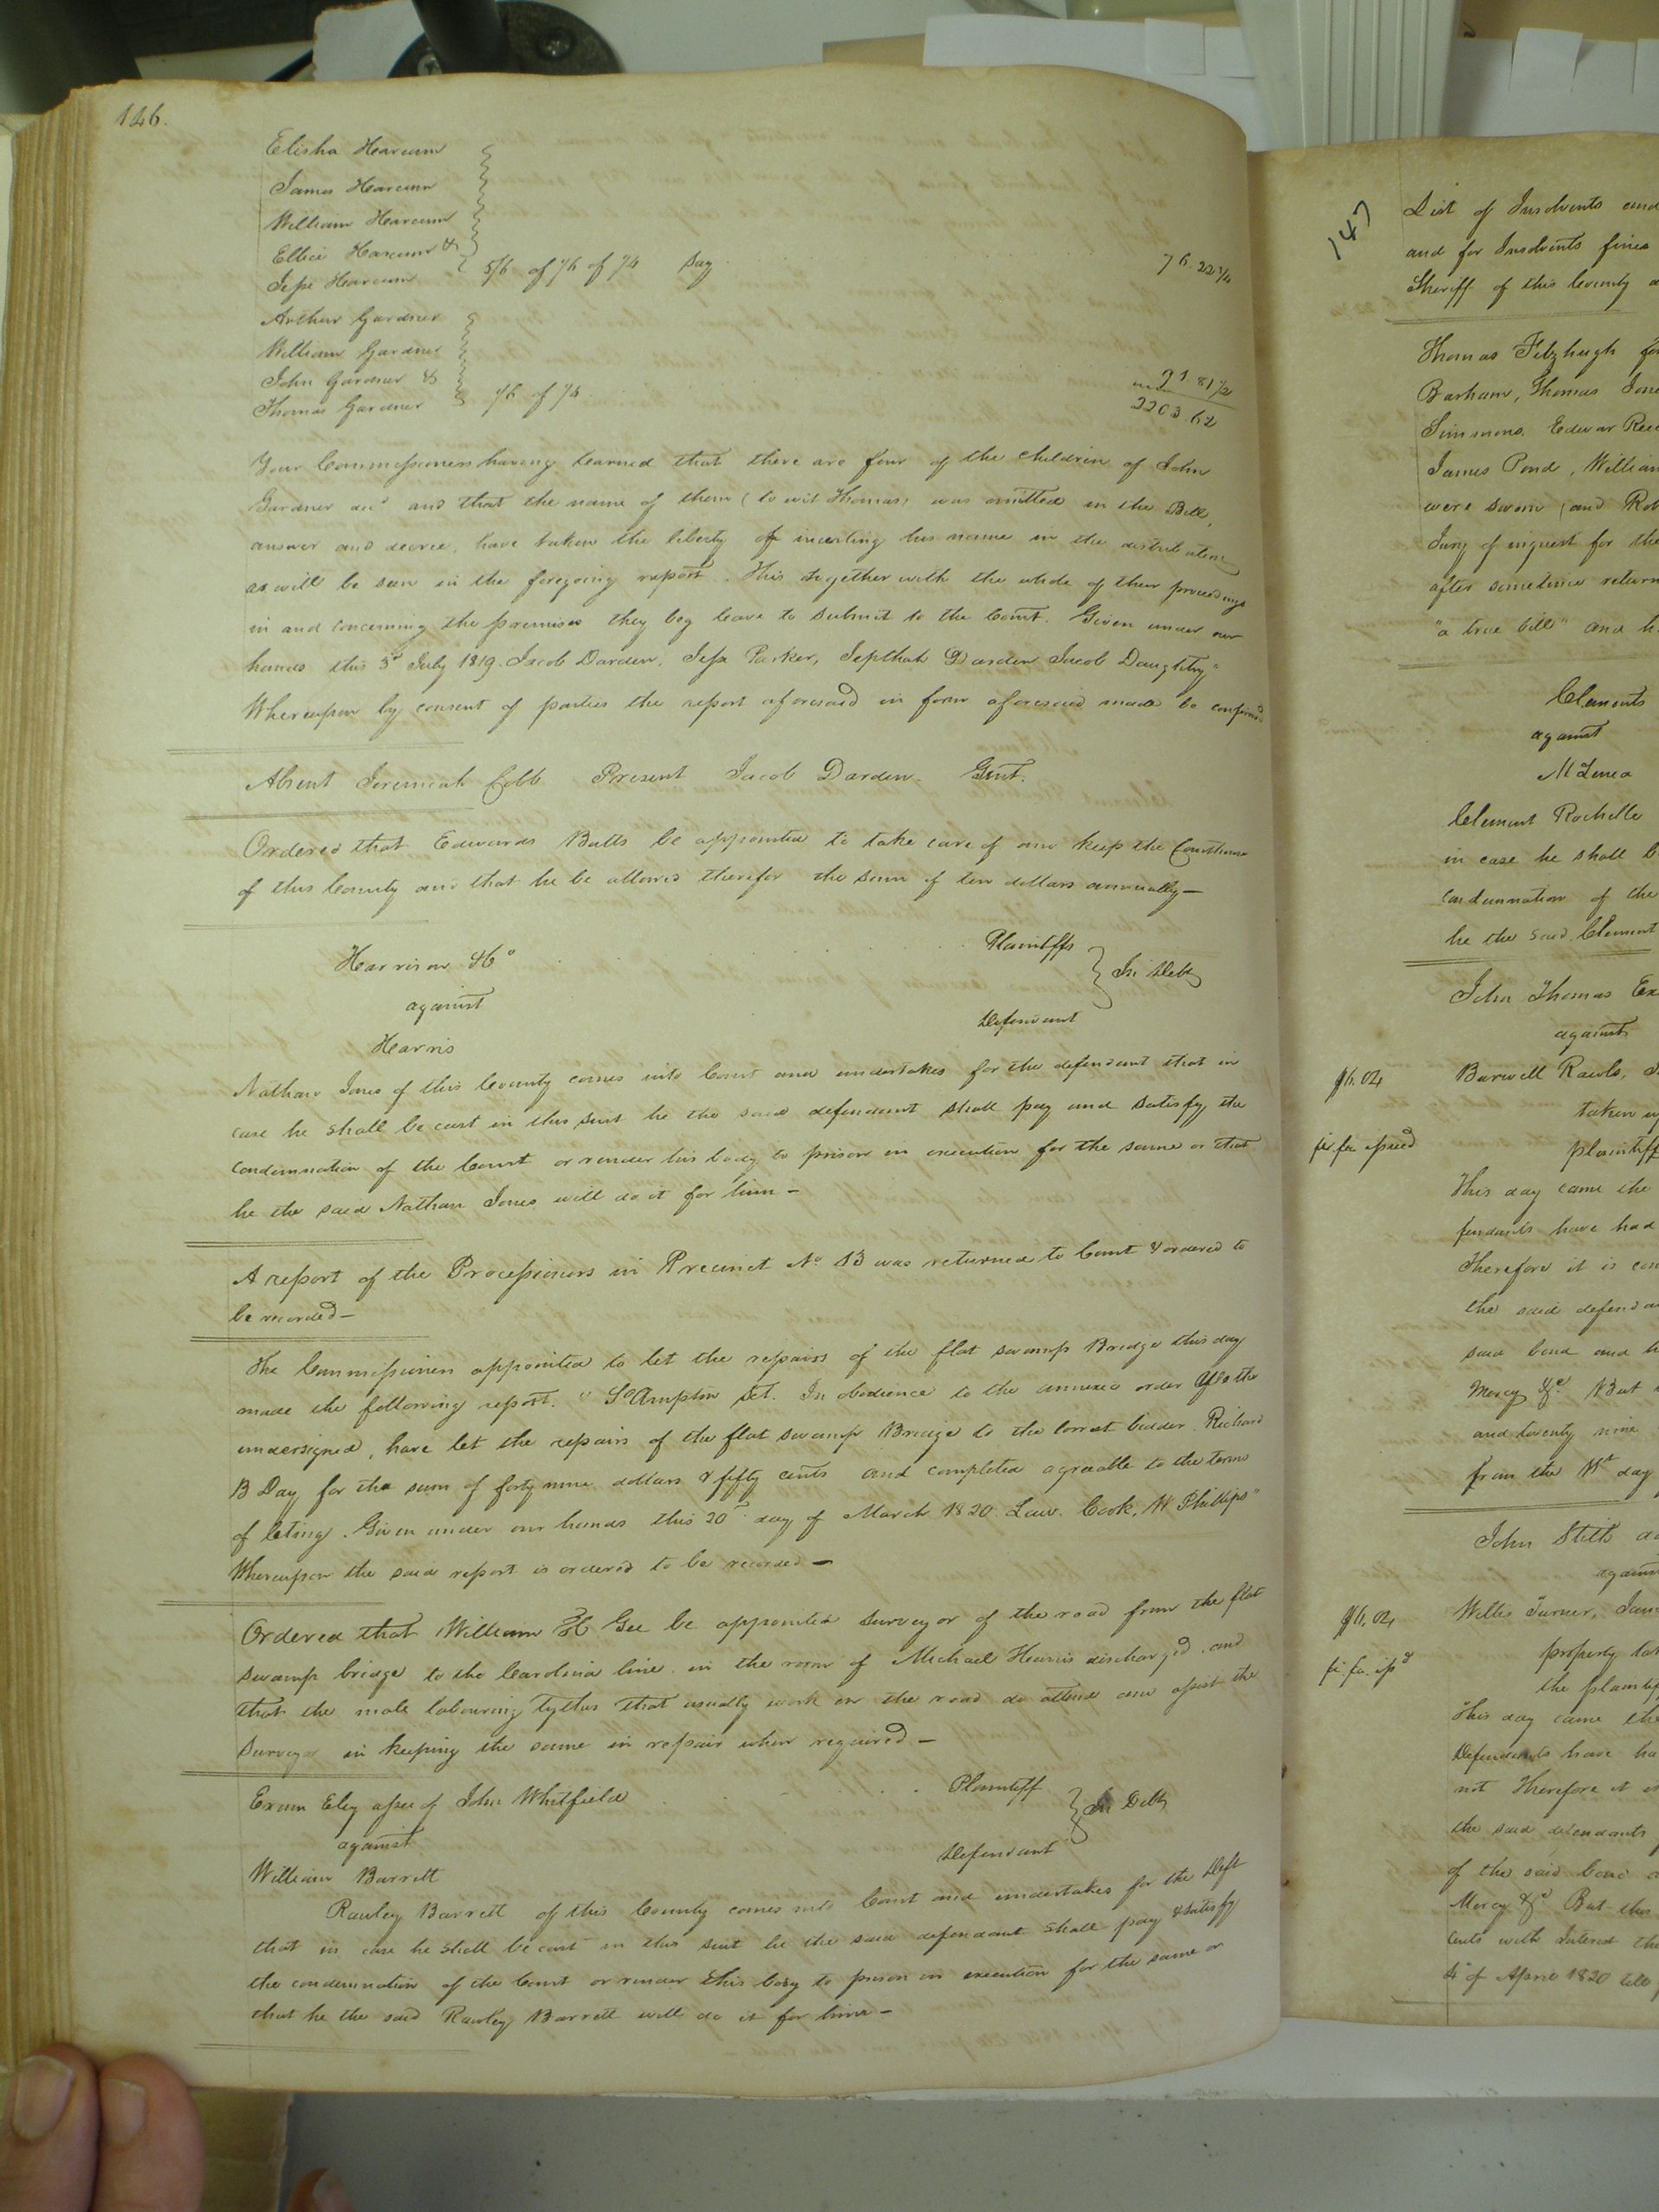 146.
Elisha Harcum
James Harcum
William Harcum
Ellice Harcum &
Jesse Harcum
5/6 of 1/6 of 1/4 Say 76.22 3/4
Arthur Gardner
William Gardner
John Gardner &
Thomas Gardner
1/6 of 1/4 91 81 1/2
2203.62
Your Commissioners having learned that there are four of the children of John
Gardner decd and that the name of them (to wit Thomas) was omitted in the Bill,
answer and decree, have taken the liberty of inserting his name in the distribution
as will be seen in the foregoing report. This together with the whole of their proceedings
in and concerning the premises they beg leave to submit to the Court. Given under our
hands this 3d July 1819. Jacob Darden, Jesse Parker, Jepthah Darden Jacob Daughtry"
Whereupon by consent of parties the report aforesaid in form aforesaid made be confirmd
Absent Jeremiah Cobb Present Jacob Darden Gent.
Ordered that Edwards Butts be appointed to take care of and keep the Courthouse
of this County and that he be allowed therefor the sum of ten dollars annually—
Harrison & Co Plaintiffs
against } In Debt
Harris Defendant
Nathan Jones of this County comes into Court and undertakes for the defendant that in
case he shall be cast in this suit he the said defendant shall pay and satisfy the
condemnation of the Court or render his body to prison in execution for the same or that
he the said Nathan Jones will do it for him—
A report of the Processioners in Precinct No 13 was returned to Court & ordered to
be recorded—
The Commissioners appointed to let the repairs of the flat swamp Bridge this day
made the following report. "So Ampton Sct. In obedience to the annexed order We the
undersigned, have let the repairs of the flat swamp Bridge to the lowest bidder Richard
B Day for the sum of forty nine dollars & fifty cents and completed agreeable to the terms
of leting. Given under our hands this 20th day of March 1820. Law. Cook, W Phillips"
Whereupon the said report is ordered to be recorded—
Ordered that William H Gee be appointed surveyor of the road from the flat
swamp bridge to the Carolina line in the room of Michael Harris discharged and
that the male labouring tythes that usually work on the road do attend and assist the
surveyor in keeping the same in repair when required—
Exum Eley assee of John Whitfield Plaintiff
against } In Debt
William Barrett Defendant
Rawley Barrett of this County comes into Court and undertakes for the Deft
that in case he shall be cast in this suit he the said defendant shall pay & satisfy
the condemnation of the Court or render this body to prison in execution for the same or
that he the said Rawley Barrett will do it for him—
147
List of Insolvents and
and for Insolvents fines
Sheriff of this County
Thomas Fitzhugh
Barham, Thomas
Simmons. Edwar
James Pond, William
were sworn (and
Jury of inquest for the
after sometime return
"a true bill" and
Clements
against
Clement Rochelle
in case he shall
Condemnation of the
he the said Clement
John Thomas Ex
against
$6.04 Burwell Rawls,
taken
fi. fa. issued plaintiff
This day came the
fendants have had
Therefore it is con
the said defenda
said bond and
Mercy &c. But
and twenty nine
from the 1st day
John Stith
against
$6.04 Willis Turner,
property
fi. fa. issd the plaintiff
This day came the
Defendants have ha
not Therefore it is
the said defendants
of the said bond
Mercy &c But this
cents with Interest
4th of April 1820 till